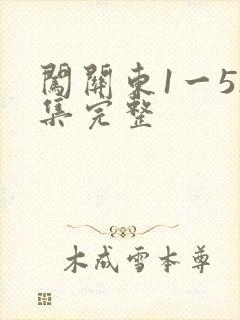 闖關東1一5
集完整
木成雪本尊